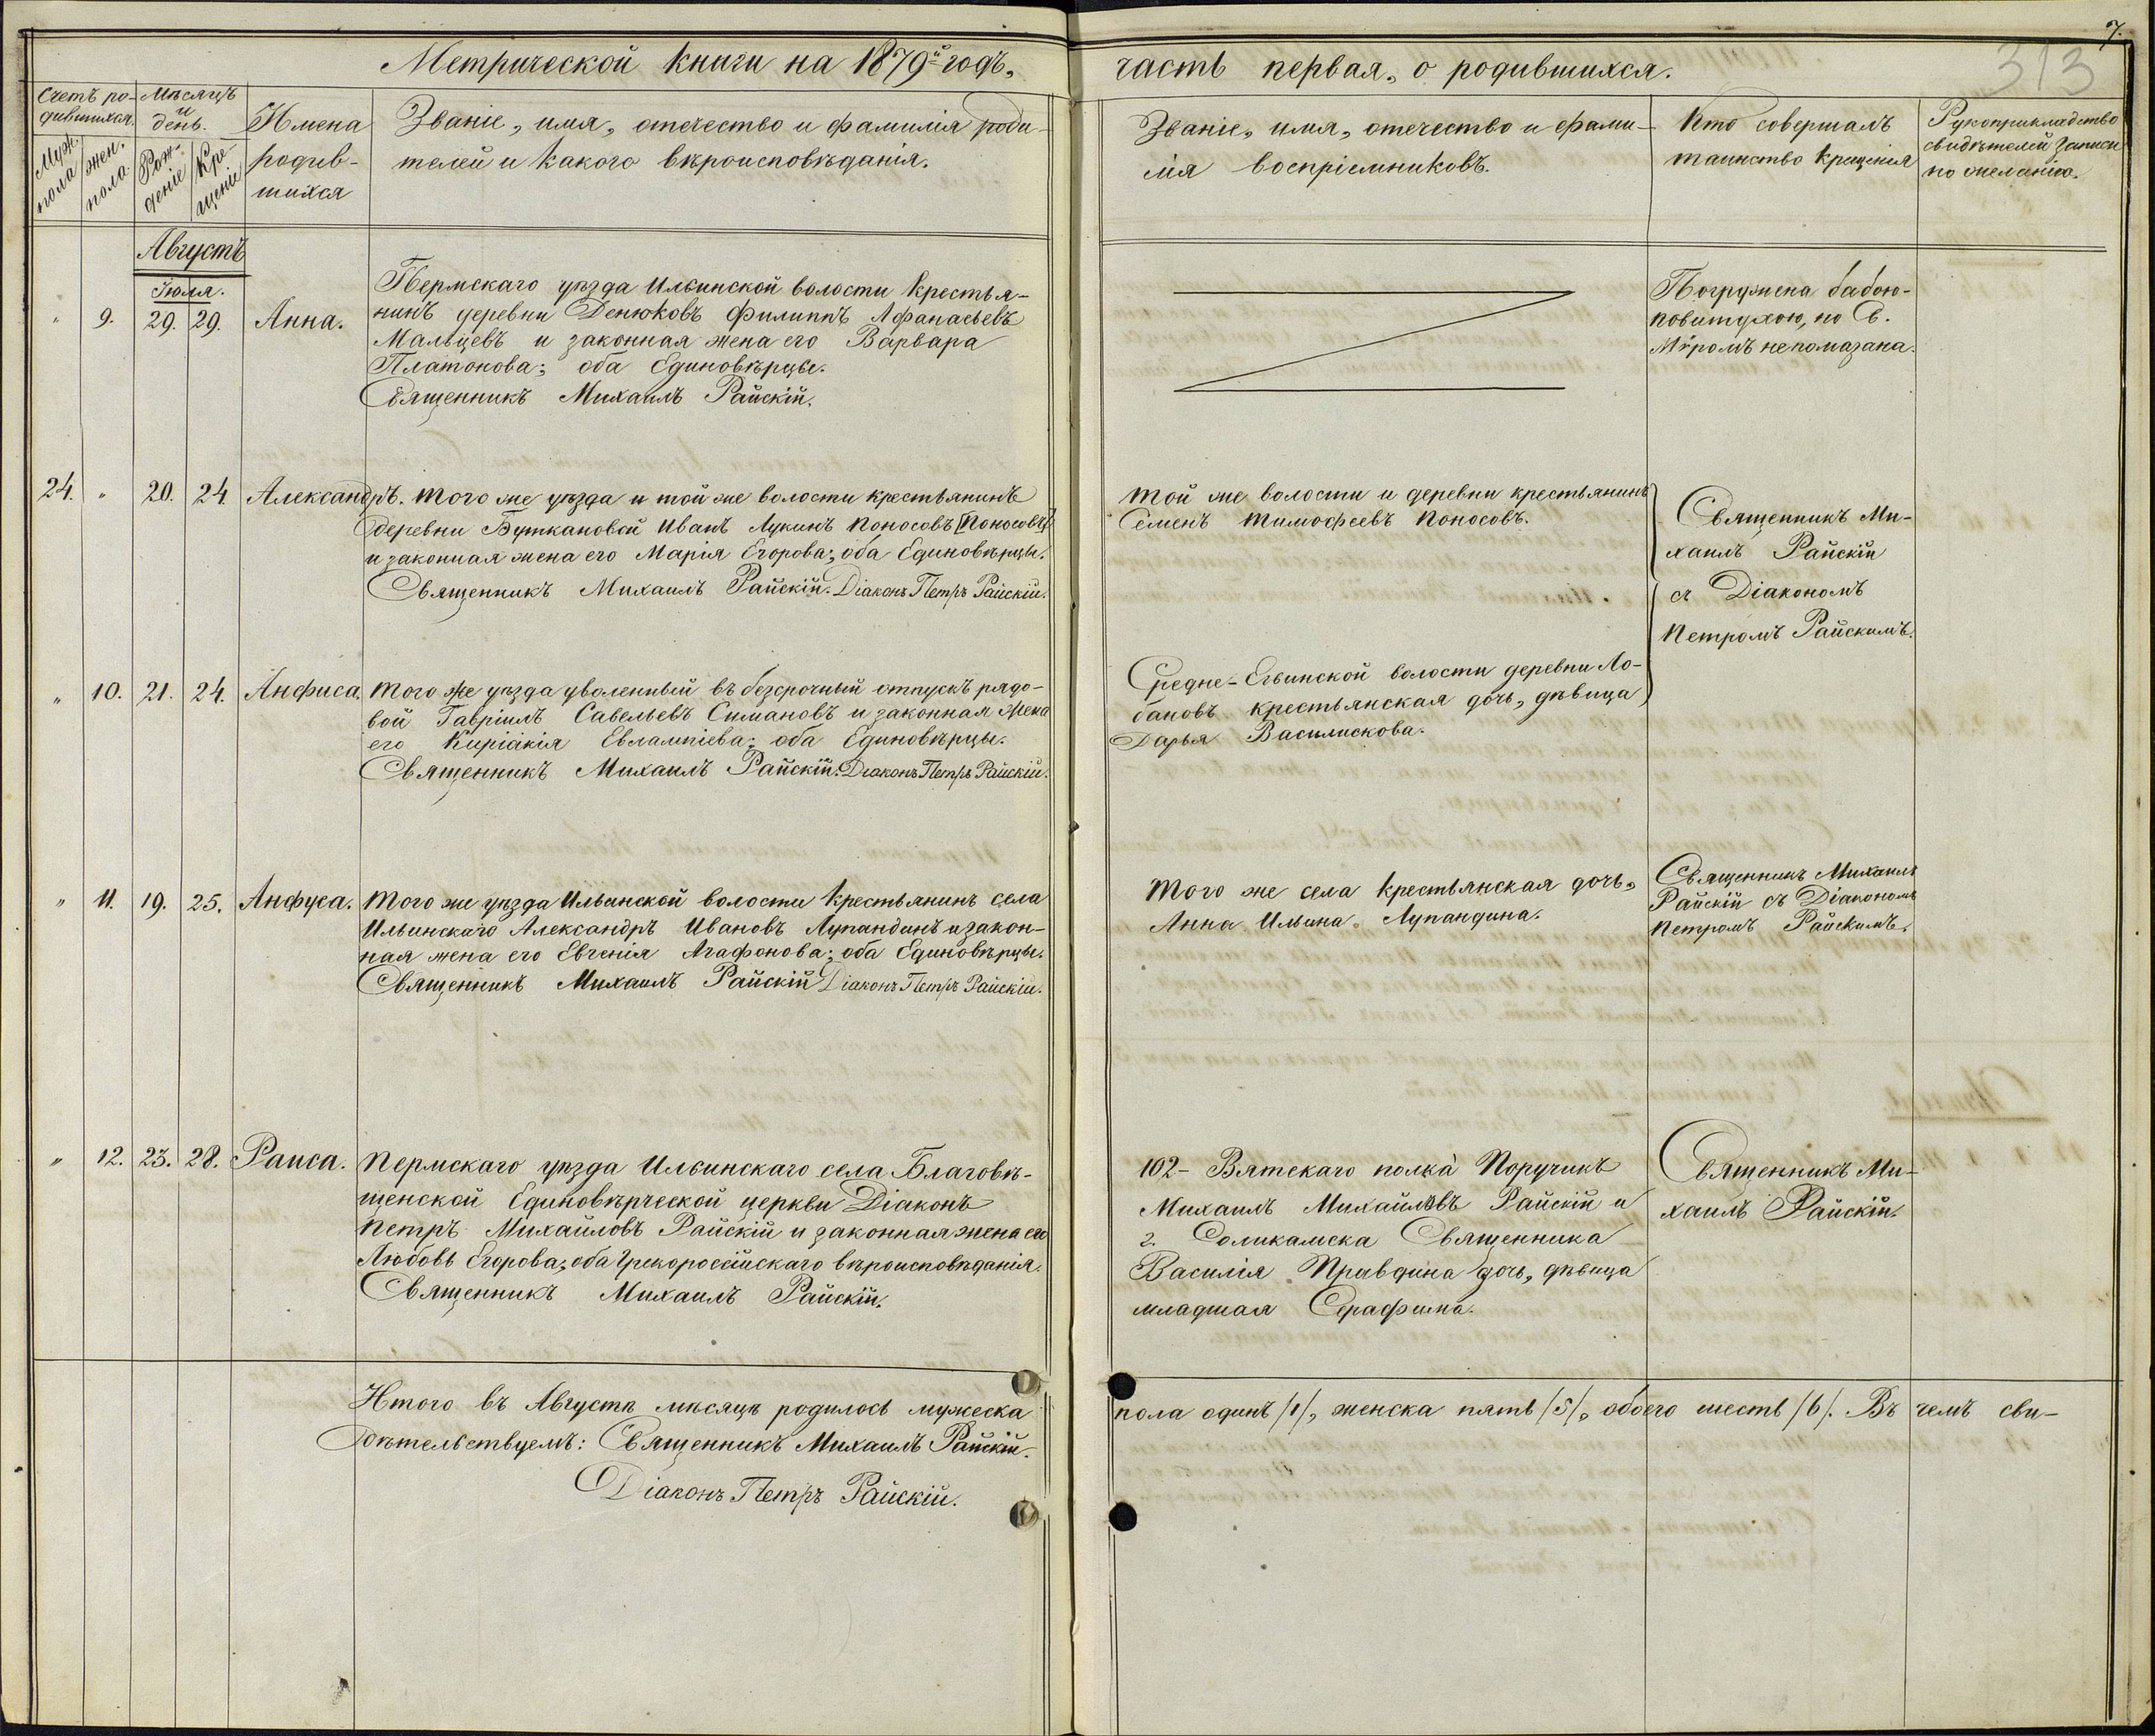 7.
313
Метрической книги на 1879й годъ,
часть первая, о родившихся.
Счетъ ро-
дившихся.
Муж. пола
жен. пола.
Мѣсяцъ
и
день.
Рож-
деніе
Кре-
щеніе
Имена
родив-
шихся
Званіе, имя, отечество и фамилія роди-
телей и какого вѣроисповѣданія.
Званіе, имя, отечество и фами-
лія воспріемниковъ.
Кто совершалъ
таинство крещенія
Рукоприкладство
свидѣтелей записи
по желанію.
Августъ
Іюля.
" 9. 29. 29. Анна.
Пермскаго уѣзда Ильинской волости крестья-
нинъ деревни Денюковъ Филиппъ Афанасьевъ
Мальцевъ и законная жена его Варвара
Платонова; оба Единовѣрцы.
Священникъ Михаилъ Райскій.
Погружена бабою-
повитухою, но Св.
Мѵромъ не помазана.
24. " 20. 24. Александръ.
Того же уѣзда и той же волости крестьянинъ
деревни Буткановой Иванъ Лукинъ Поносовъ [Поносовъ]
и законная жена его Марія Егорова; оба Единовѣрцы.
Священникъ Михаилъ Райскій. Діаконъ Петръ Райскій.
Той же волости и деревни крестьянинъ
Семенъ Тимофеевъ Поносовъ.
Священникъ Ми-
хаилъ Райскій
съ Діакономъ
Петромъ Райскимъ.
" 10. 21. 24. Анфиса.
Того же уѣзда уволенный въ безсрочный отпускъ рядо-
вой Гавріилъ Савельевъ Симановъ и законная жена
его Киріакія Евлампіева; оба Единовѣрцы.
Священникъ Михаилъ Райскій. Діаконъ Петръ Райскій.
Средне-Егвинской волости деревни Ло-
бановъ крестьянская дочь, дѣвица
Дарья Василискова.
" 11. 19. 25. Анфуса.
Того же уѣзда Ильинской волости крестьянинъ села
Ильинскаго Александръ Ивановъ Лупандинъ и закон-
ная жена его Евгенія Агафонова; оба Единовѣрцы.
Священникъ Михаилъ Райскій Діаконъ Петръ Райскій.
Того же села крестьянская дочь,
Анна Ильина Лупандина.
Священникъ Михаилъ
Райскій съ Діакономъ
Петромъ Райскимъ.
" 12. 23. 28. Раиса.
Пермскаго уѣзда Ильинскаго села Благовѣ-
щенской Единовѣрческой церкви Діаконъ
Петръ Михайловъ Райскій и законная жена его
Любовь Егорова; оба Грекороссійскаго вѣроисповѣданія.
Священникъ Михаилъ Райскій.
102- Вятскаго полка Поручикъ
Михаилъ Михайловъ Райскій и
г. Соликамска Священника
Василія Правдина дочь, дѣвица
младшая Серафима.
Священникъ Ми-
хаилъ Райскій.
Итого въ Августѣ мѣсяцѣ родилось мужеска
пола одинъ /1/, женска пять /5/, обоего шесть /6/. Въ чемъ сви-
дѣтельствуемъ: Священникъ Михаилъ Райскій.
Діаконъ Петръ Райскій.